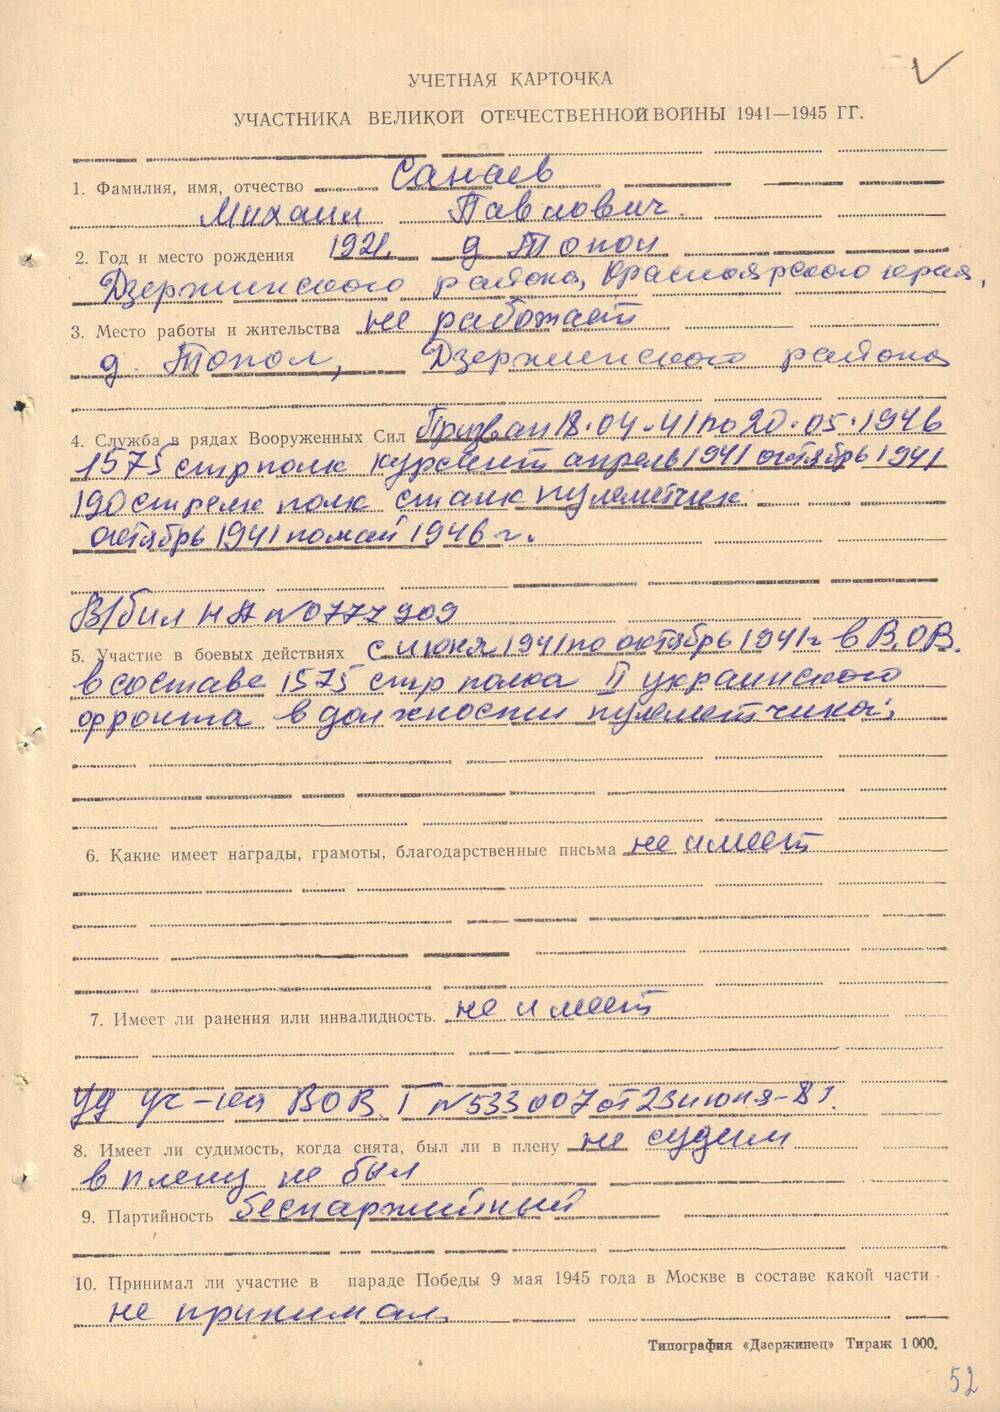 УЧЕТНАЯ КАРТОЧКА
УЧАСТНИКА ВЕЛИКОЙ ОТЕЧЕСТВЕННОЙ ВОЙНЫ 1941—1945 ГГ.
1. Фамилия, имя, отчество Санаев
Михаил Павлович.
2. Год и место рождения 1921. д Топол
Дзержинского района, Красноярского края,
3. Место работы и жительства не работает
д. Топол, Дзержинского района
4. Служба в рядах Вооруженных Сил Призван 18.04-41 по 20.05.1946
1575 стр полк курсант апрель 1941 октябрь 1941
190 стрелк полк станк пулеметчик
октябрь 1941 по май 1946 г.
В/бил НД №0777909
5. Участие в боевых действиях с июня 1941 по октябрь 1941 г в В.О.В.
в составе 1575 стр полка II украинского
фронта в должности пулеметчика.
6. Какие имеет награды, грамоты, благодарственные письма не имеет
7. Имеет ли ранения или инвалидность. не имеет
Уд уч-ка ВОВ Г №533007 от 23 июня-81.
8. Имеет ли судимость, когда снята, был ли в плену не судим
в плену не был
9. Партийность беспартийный
10. Принимал ли участие в параде Победы 9 мая 1945 года в Москве в составе какой части
не принимал.
Типография «Дзержинец» Тираж 1000.
52